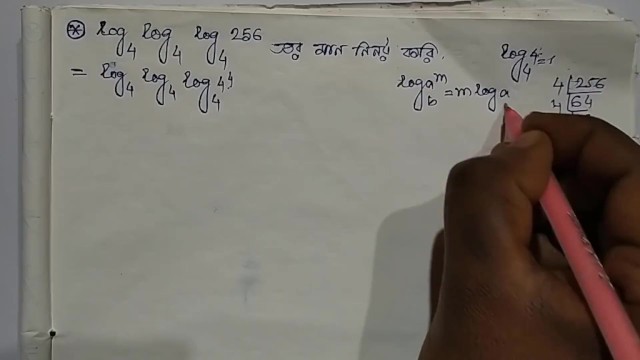 * log₄ log₄ log₄ 256 এর মান নির্ণয় করি.
= log₄ log₄ log₄ 4⁴
log₄ 4 = 1
log_b a^m = m log a
4 | 256
4 | 64